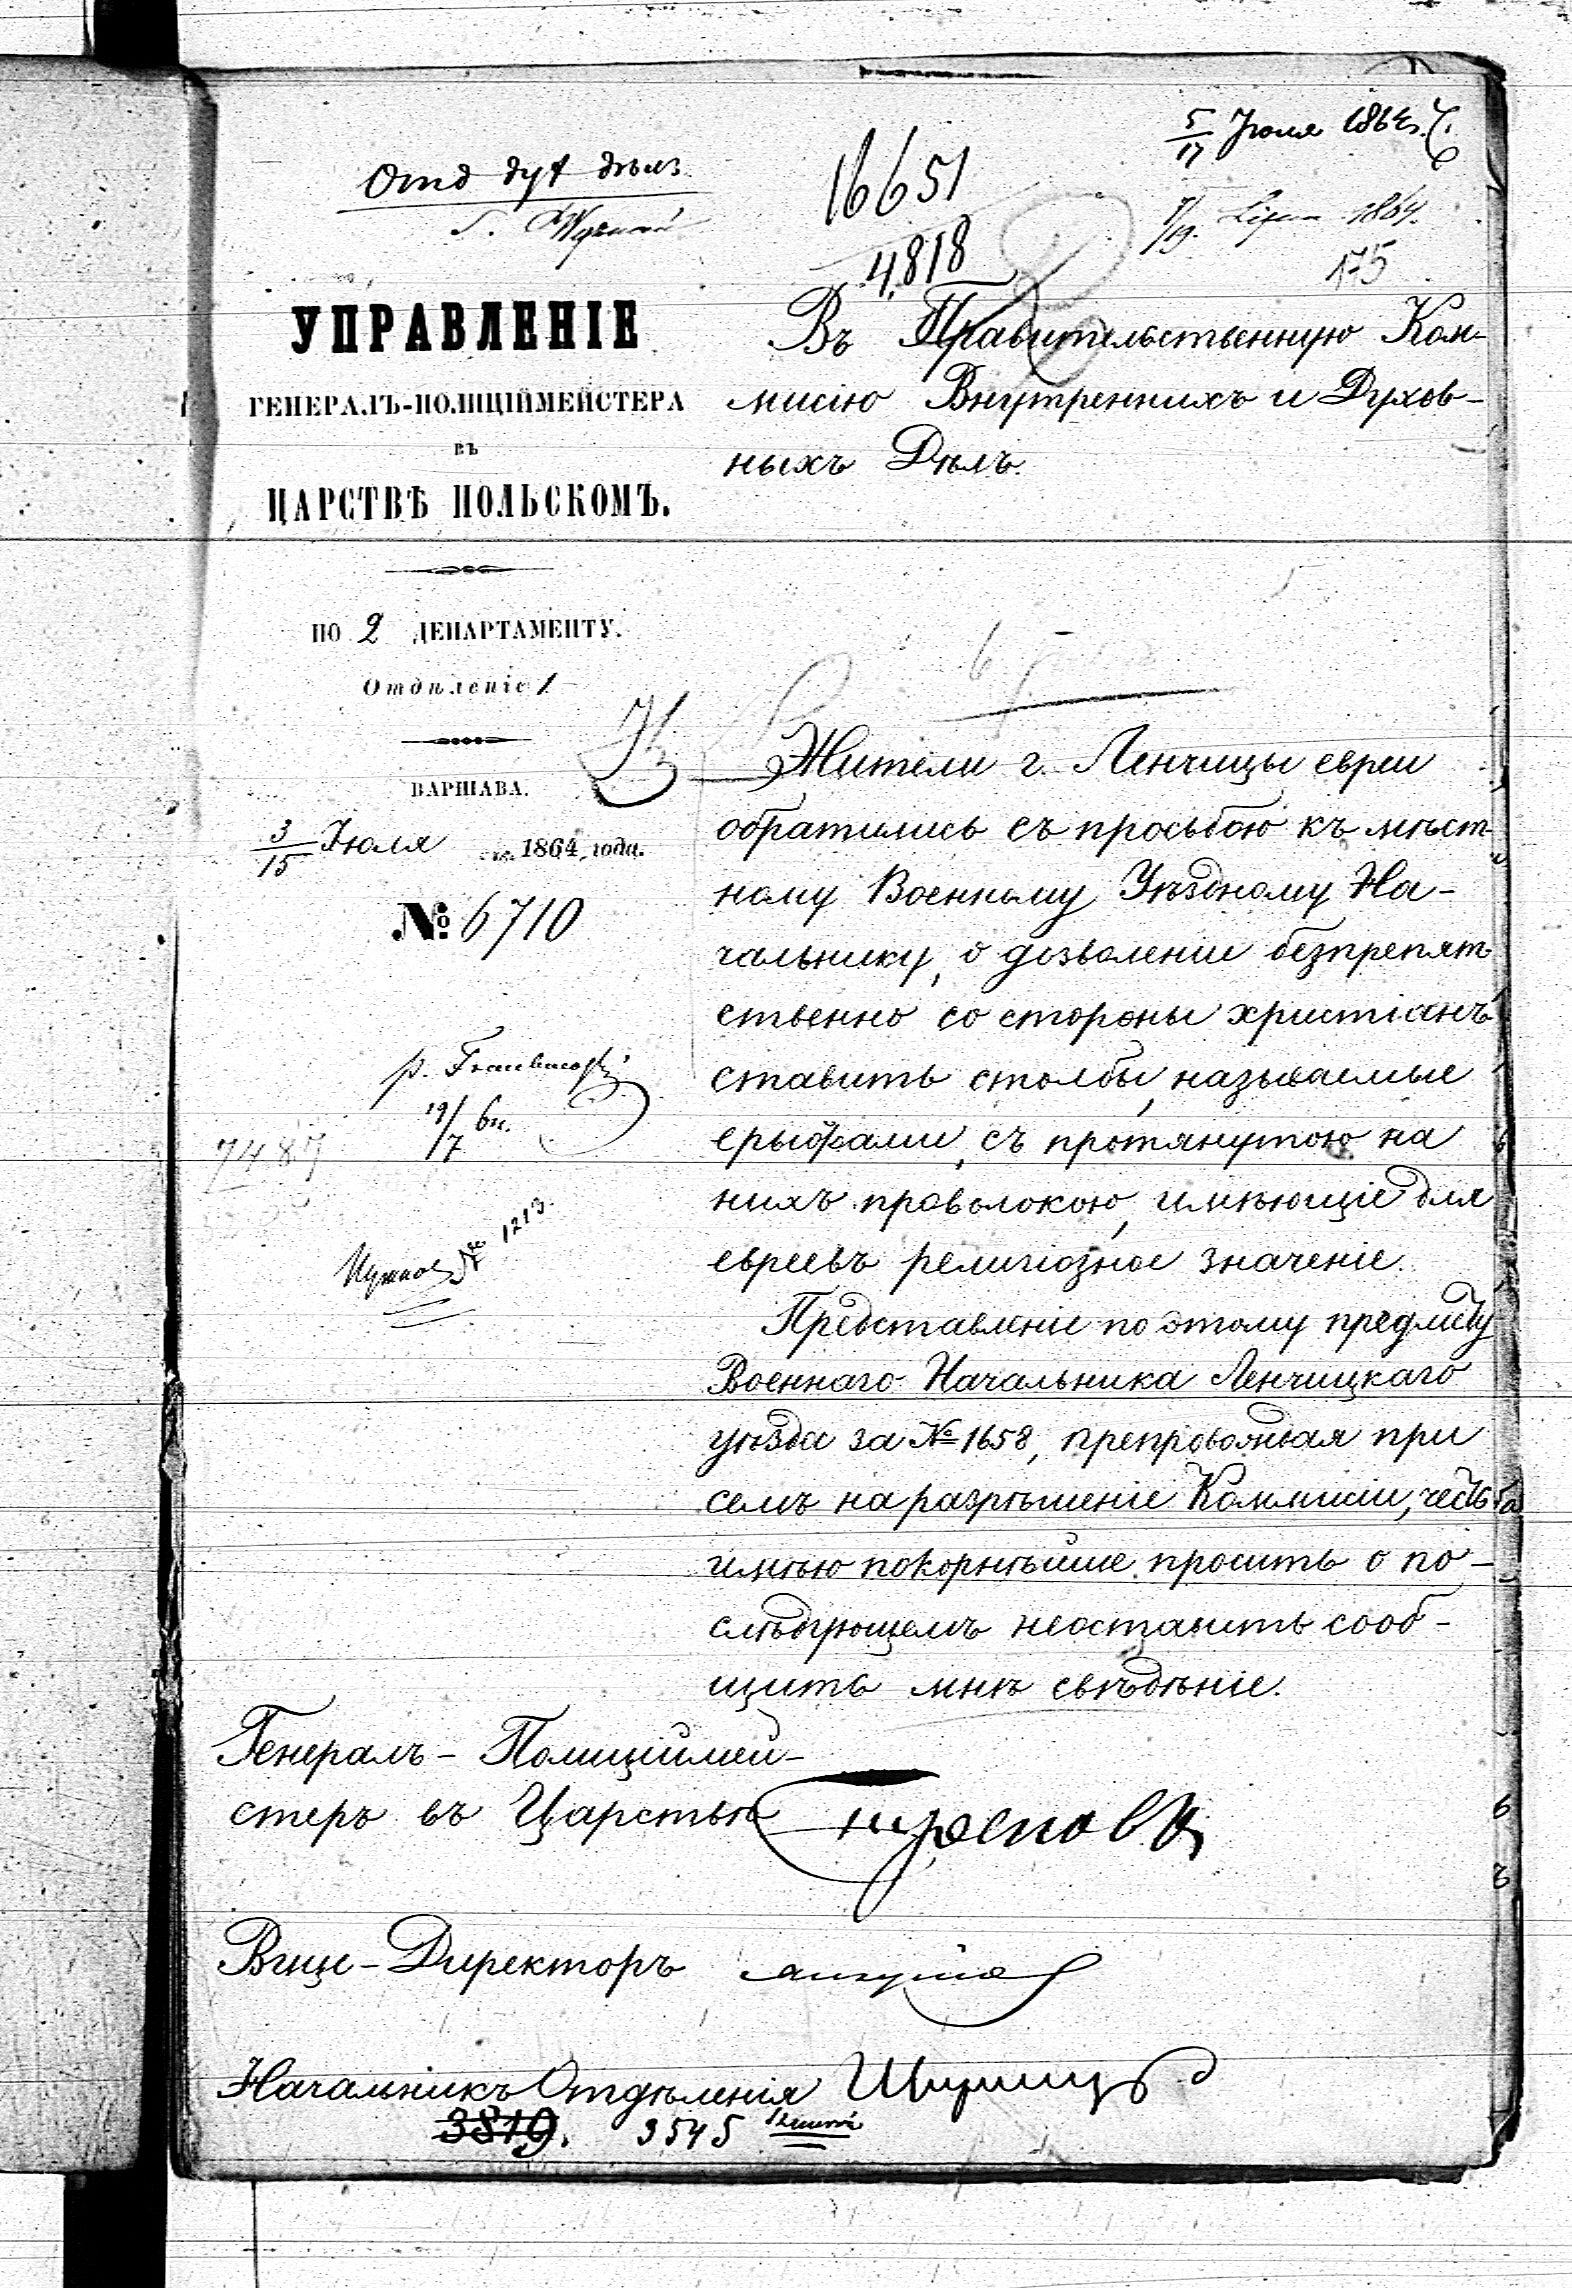 5/17 Іюля 1864 г.
Отд дух дѣлъ
16651
4818
7/19. Lipca 1864.
175
УПРАВЛЕНІЕ
ГЕНЕРАЛЪ-ПОЛИЦІЙМЕЙСТЕРА
ВЪ
ЦАРСТВѢ ПОЛЬСКОМЪ.
ПО 2 ДЕПАРТАМЕНТУ.
Отдѣленіе 1
ВАРШАВА.
3/15 Іюля 1864 года.
№ 6710
19/7
7487
№ 1213
Въ Правительственную Ком-
мисію Внутреннихъ и Духов-
ныхъ Дѣлъ.
Жители г. Ленчицы евреи
обратились съ просьбою къ мѣст-
ному Военному Уѣздному На-
чальнику, о дозволеніи безпрепят-
ственно со стороны христіанъ
ставить столбы, называемые
ерыфами, съ протянутою на
нихъ проволокою, имѣющіе для
евреевъ религіозное значеніе.
Представленіе по этому предмету
Военнаго Начальника Ленчицкаго
уѣзда за № 1658, препровождая при
семъ на разрѣшеніе Коммисіи, честь
имѣю покорнѣйше просить о по-
слѣдующемъ неоставить сооб-
щить мнѣ свѣдѣніе.
Генералъ-Полиціймей-
стеръ въ Царствѣ Треповъ
Вице-Директоръ
Начальникъ Отдѣленія
3819. 3545